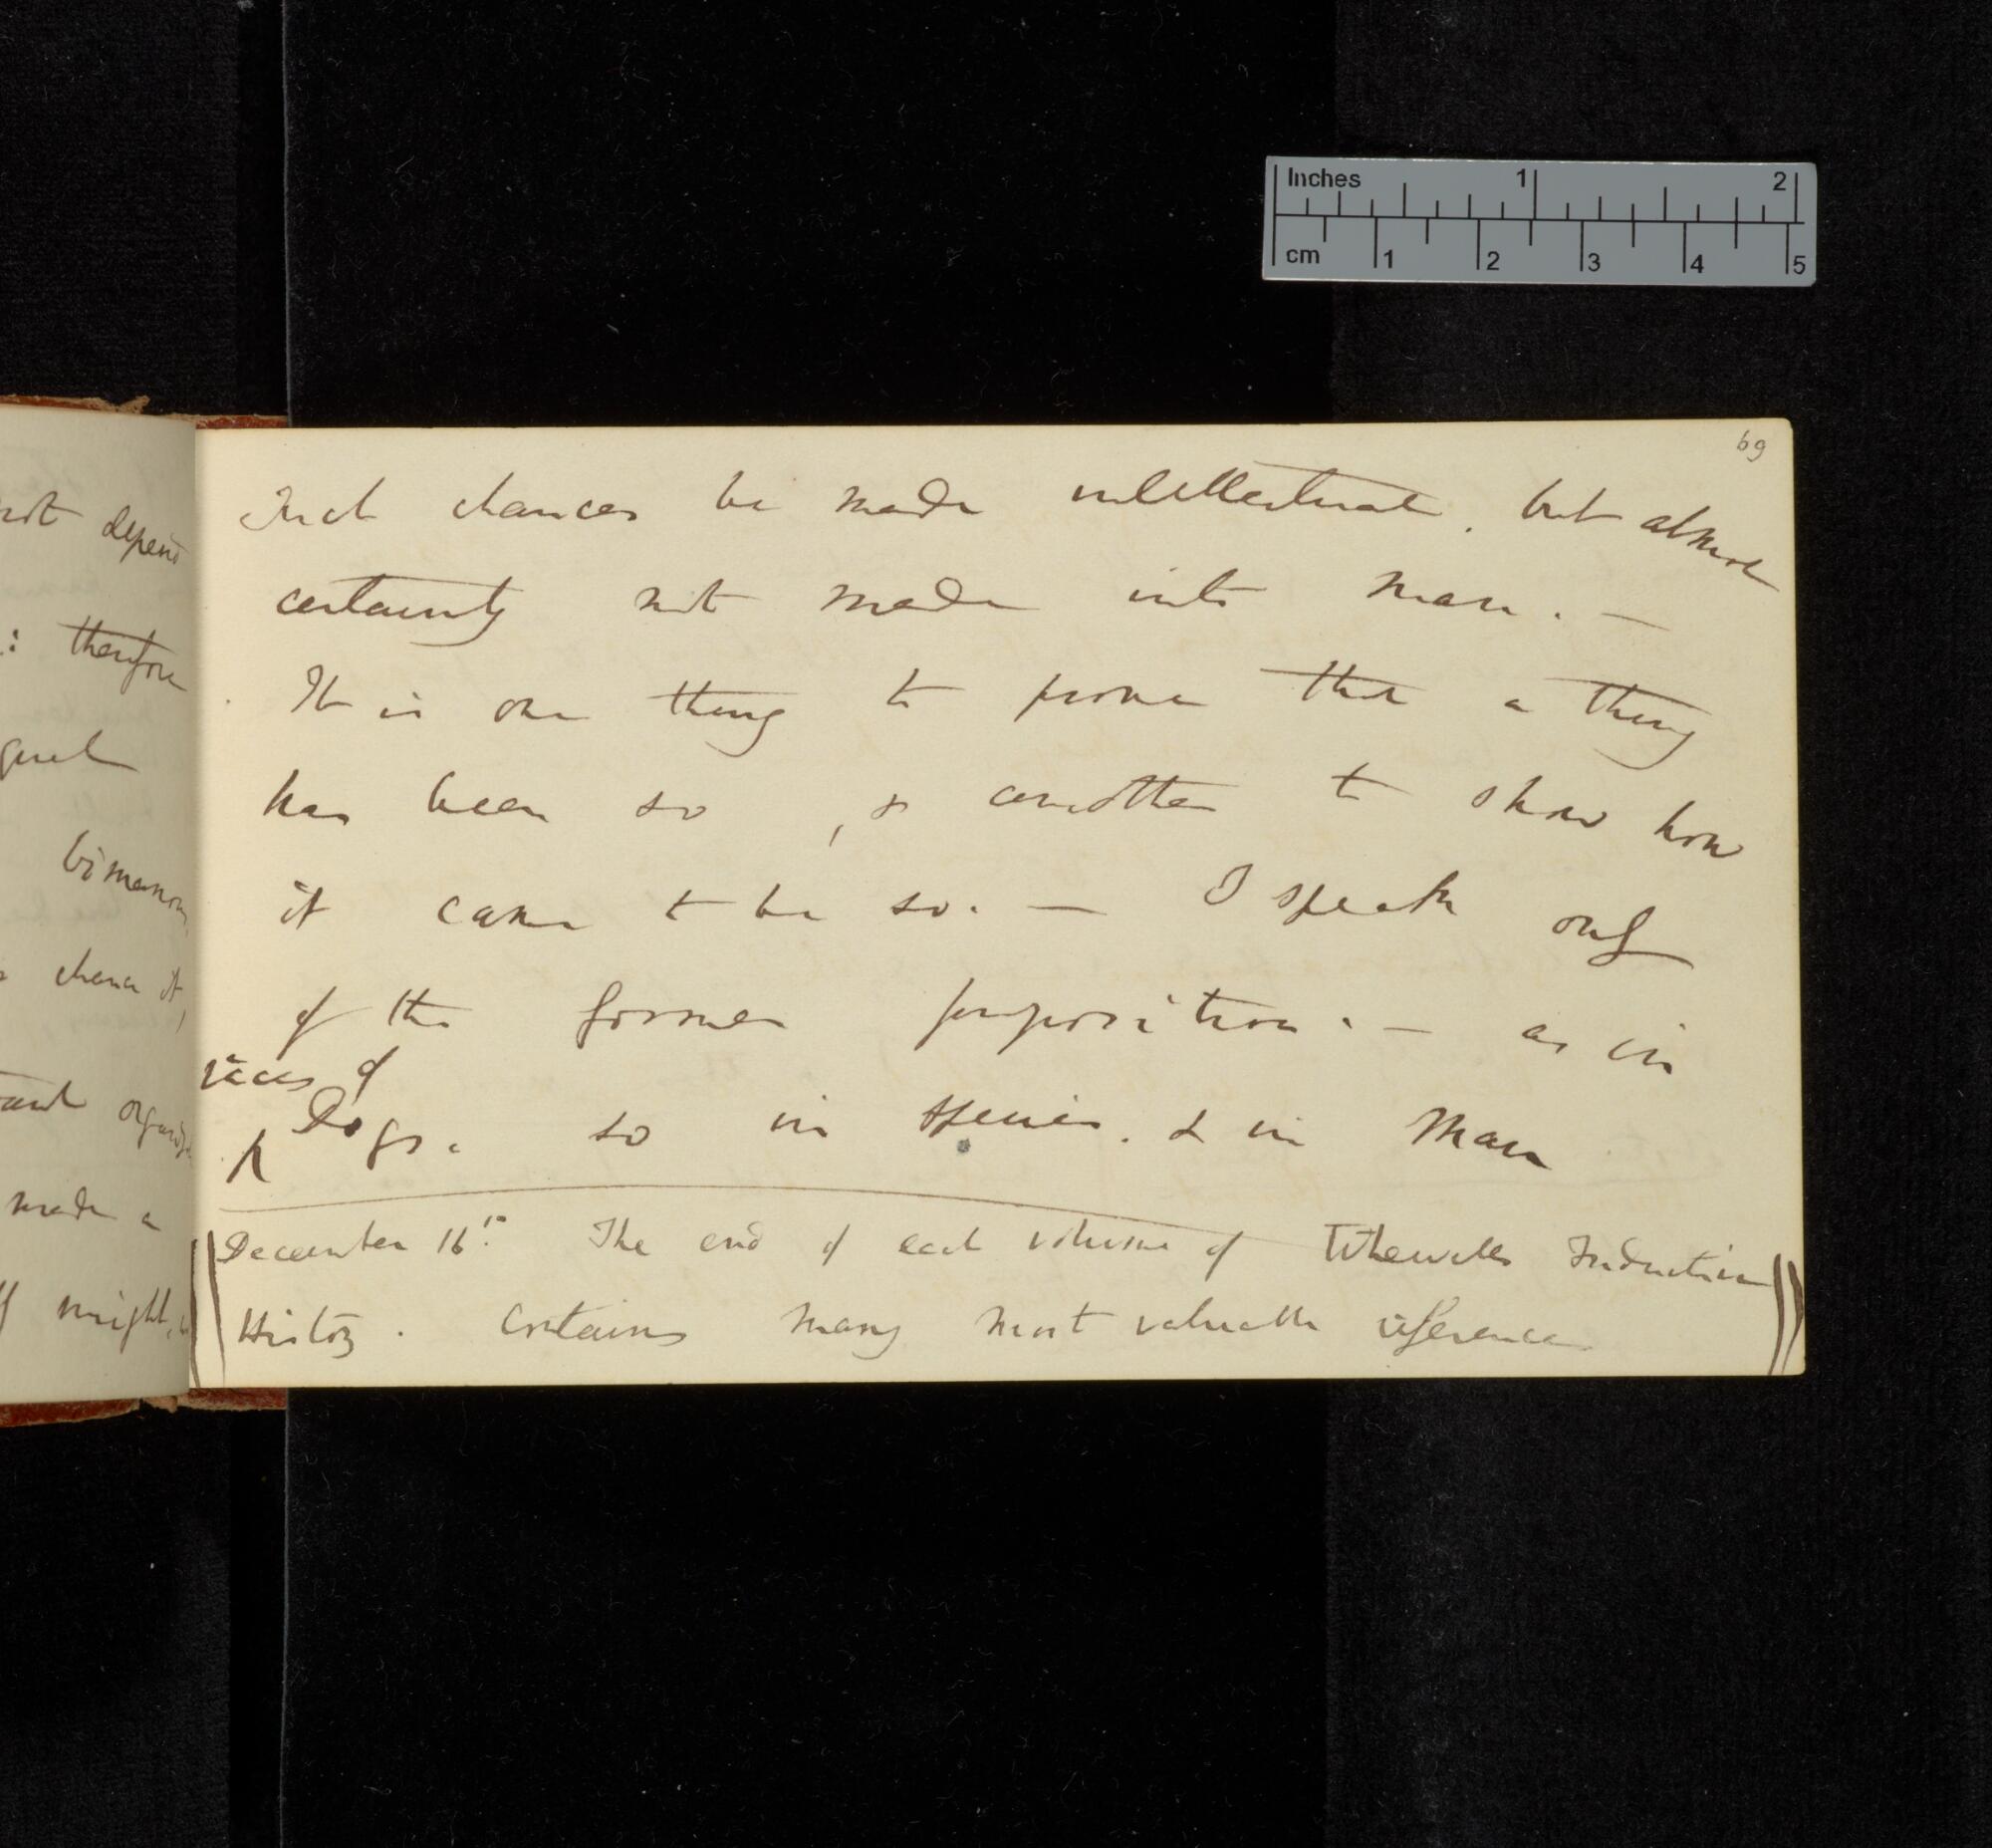 not depend
: therefore
great
bimanous
chance it,
organiz
made a
might, 
69
such chances be made intellectual, but almost
certainly not made into man. —
It is one thing to prove that a thing
has been so, & another to show how
it came to be so. — I speak only
of the former proposition. — as in
races of
Dogs. so in species. & in Man
December 16th. The end of each volume of Whewells Induction
History. contains many most valuable references
Inches 1 2
cm 1 2 3 4 5